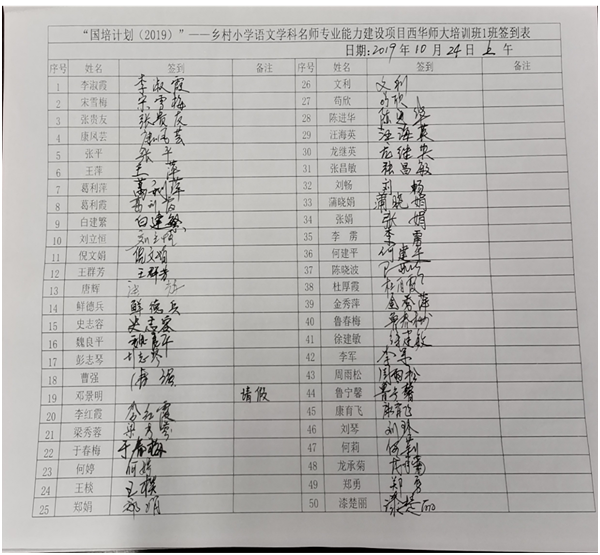 “国培计划（2019）”——乡村小学语文学科名师专业能力建设项目西华师大培训班1班签到表
日期:2019年10月24日上午
序号 姓名 签到 备注 序号 姓名 签到 备注
1 李淑霞 李淑霞 26 文利 文利
2 宋雪梅 宋雪梅 27 苟欣
3 张贵友 张贵友 28 陈进华
4 康凤芸 29 汪海英 汪海英
5 张平 张平 30 龙继英 龙继英
6 王萍 王萍 31 张昌敏 张昌敏
7 葛利萍 32 刘畅 刘畅
8 葛利霞 33 蒲晓娟 蒲晓娟
9 白建繁 白建繁 34 张娟 张娟
10 刘立恒 35 李雳
11 倪文娟 倪文娟 36 何建平 何建平
12 王群芳 王群芳 37 陈晓波
13 唐辉 38 杜厚霞
14 鲜德兵 鲜德兵 39 金秀萍 金秀萍
15 史志容 史志容 40 鲁春梅
16 魏良平 41 徐建敏 徐建敏
17 彭志琴 42 李军
18 曹强 43 周雨松 周雨松
19 邓景明 请假 44 鲁宁馨
20 李红霞 李红霞 45 康育飞 康育飞
21 梁秀蓉 46 刘琴
22 于春梅 于春梅 47 何莉 何莉
23 何婷 何婷 48 龙承菊
24 王模 49 郑勇 郑勇
25 郑娟 50 漆楚丽